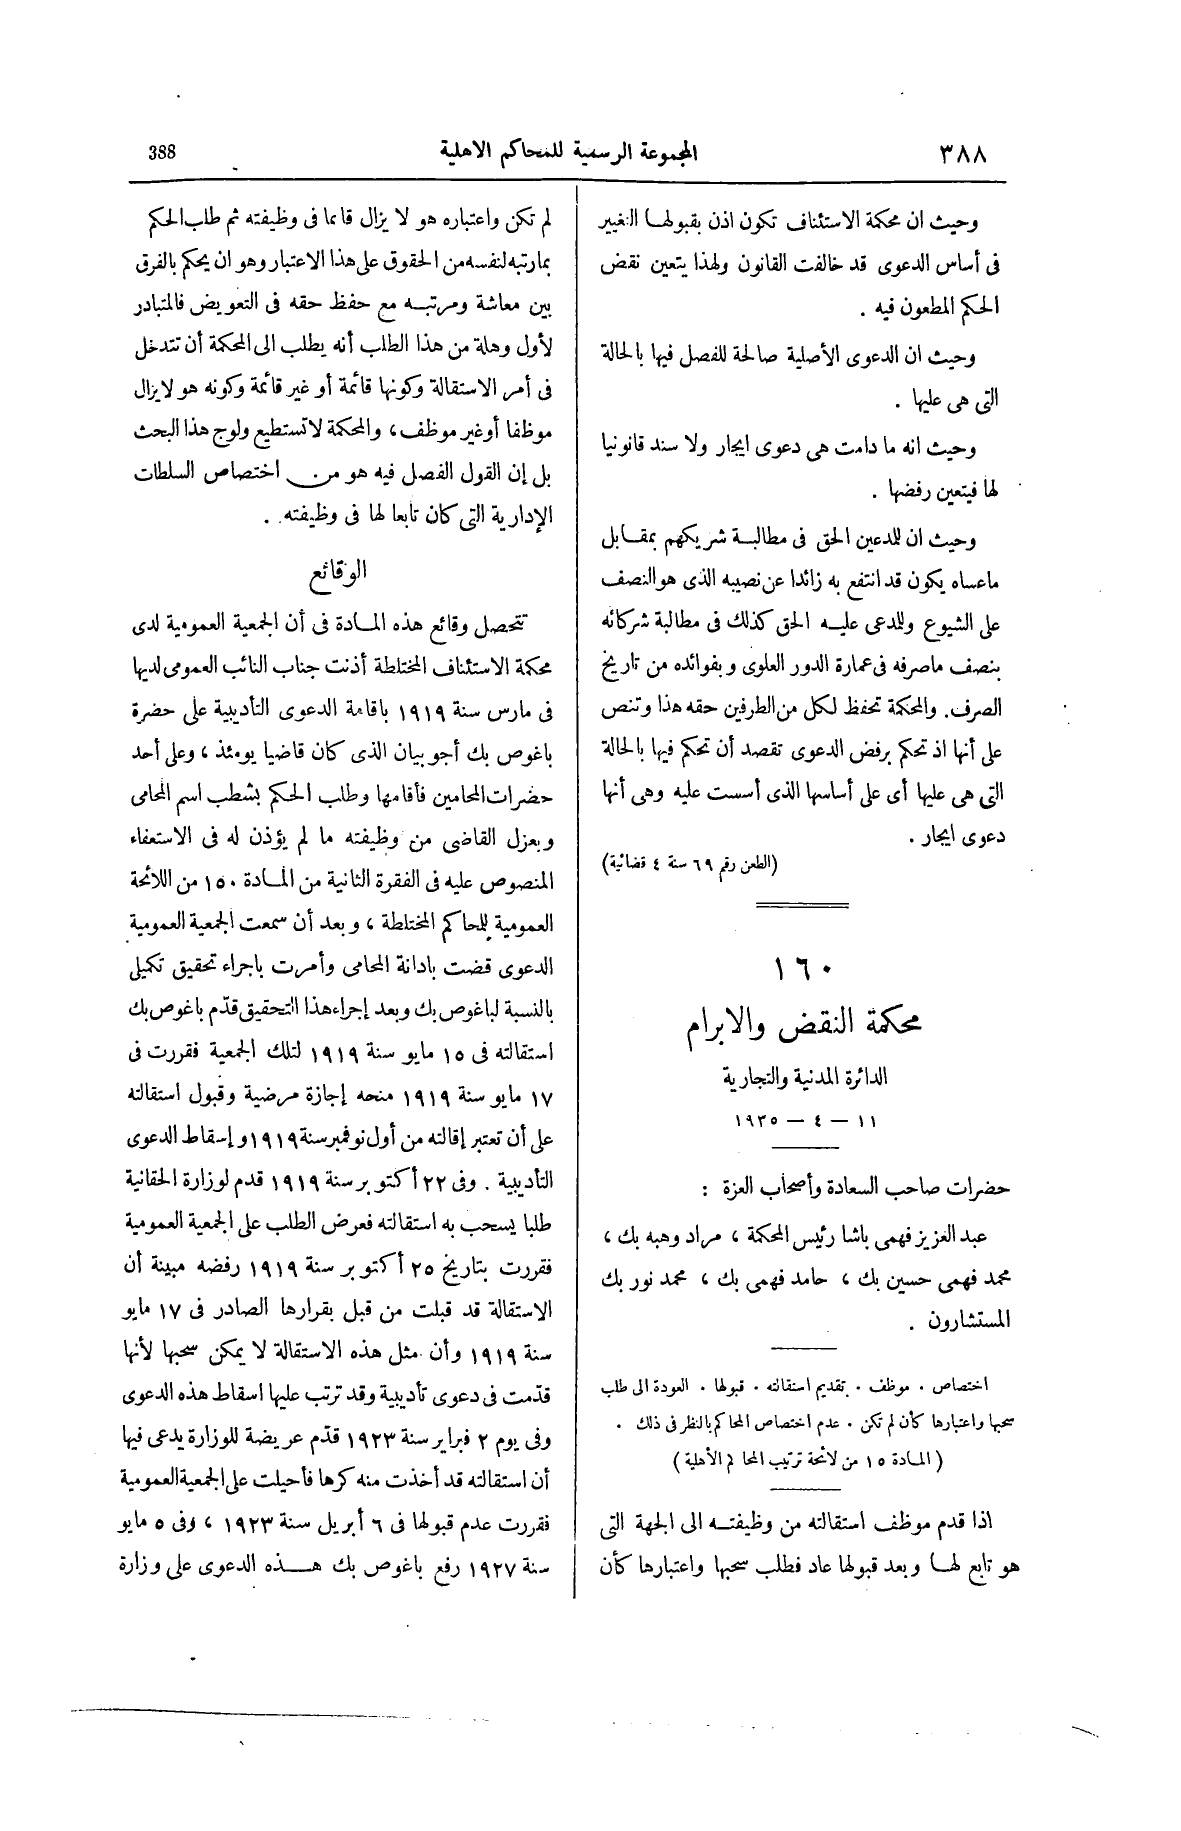 ٣٨٨
المجموعة الرسمية للمحاكم الاهلية
388
وحيث ان محكمة الاستئناف تكون اذن بقبولها التغيير
فى أساس الدعوى قد خالفت القانون ولهذا يتعين نقض
الحكم المطعون فيه .
وحيث ان الدعوى الأصلية صالحة للفصل فيها بالحالة
التى هى عليها .
وحيث انه ما دامت هى دعوى ايجار ولا سند قانونيا
لها فيتعين رفضها .
وحيث ان للمدعين الحق فى مطالبة شريكهم بمقابل
ماعساه يكون قد انتفع به زائدا عن نصيبه الذى هو النصف
على الشيوع وللمدعى عليه الحق كذلك فى مطالبة شركائه
بنصف ماصرفه فى عمارة الدور العلوى وبفوائده من تاريخ
الصرف. والمحكمة تحفظ لكل من الطرفين حقه هذا وتنص
على أنها اذ تحكم برفض الدعوى تقصد أن تحكم فيها بالحالة
التى هى عليها أى على أساسها الذى أسست عليه وهى أنها
دعوى ايجار .
(الطعن رقم ٦٩ سنة ٤ قضائية)
١٦٠
محكمة النقض والابرام
الدائرة المدنية والتجارية
١١ — ٤ — ١٩٣٥
حضرات صاحب السعادة وأصحاب العزة :
عبد العزيز فهمى باشا رئيس المحكمة ، مراد وهبه بك ،
محمد فهمى حسين بك ، حامد فهمى بك ، محمد نور بك
المستشارون .
اختصاص . موظف . تقديم استقالته . قبولها . العودة الى طلب
سحبها واعتبارها كأن لم تكن . عدم اختصاص المحاكم بالنظر فى ذلك .
( المادة ١٥ من لائحة ترتيب المحاكم الأهلية )
اذا قدم موظف استقالته من وظيفته الى الجهة التى
هو تابع لها وبعد قبولها عاد فطلب سحبها واعتبارها كأن
لم تكن واعتباره هو لا يزال قائما فى وظيفته ثم طلب الحكم
بمارتبه لنفسه من الحقوق على هذا الاعتبار وهو ان يحكم بالفرق
بين معاشة ومرتبه مع حفظ حقه فى التعويض فالمتبادر
لأول وهلة من هذا الطلب أنه يطلب الى المحكمة أن تتدخل
فى أمر الاستقالة وكونها قائمة أو غير قائمة وكونه هو لايزال
موظفا أو غير موظف، والمحكمة لاتستطيع ولوج هذا البحث
بل إن القول الفصل فيه هو من اختصاص السلطات
الإدارية التى كان تابعا لها فى وظيفته .
الوقائع
تتحصل وقائع هذه المادة فى أن الجمعية العمومية لدى
محكمة الاستئناف المختلطة أذنت جناب النائب العمومى لديها
فى مارس سنة ١٩١٩ باقامة الدعوى التأديبية على حضرة
باغوص بك أجوبيان الذى كان قاضيا يومئذ ، وعلى أحد
حضرات المحامين فأقامها وطلب الحكم بشطب اسم المحامى
وبعزل القاضى من وظيفته ما لم يؤذن له فى الاستعفاء
المنصوص عليه فى الفقرة الثانية من المادة ١٥٠ من اللائحة
العمومية للمحاكم المختلطة ، وبعد أن سمعت الجمعية العمومية
الدعوى قضت بادانة المحامى وأمرت باجراء تحقيق تكميلى
بالنسبة لباغوص بك وبعد إجراء هذا التحقيق قدّم باغوص بك
استقالته فى ١٥ مايو سنة ١٩١٩ لتلك الجمعية فقررت فى
١٧ مايو سنة ١٩١٩ منحه إجازة مرضية وقبول استقالته
على أن تعتبر إقالته من أول نوفمبر سنة ١٩١٩ وإسقاط الدعوى
التأديبية . وفى ٢٢ أكتوبر سنة ١٩١٩ قدم لوزارة الحقانية
طلبا يسحب به استقالته فعرض الطلب على الجمعية العمومية
فقررت بتاريخ ٢٥ أكتوبر سنة ١٩١٩ رفضه مبينة أن
الاستقالة قد قبلت من قبل بقرارها الصادر فى ١٧ مايو
سنة ١٩١٩ وأن مثل هذه الاستقالة لا يمكن سحبها لأنها
قدّمت فى دعوى تأديبية وقد ترتب عليها اسقاط هذه الدعوى
وفى يوم ٢ فبراير سنة ١٩٢٣ قدّم عريضة للوزارة يدعى فيها
أن استقالته قد أخذت منه كرها فأحيلت على الجمعية العمومية
فقررت عدم قبولها فى ٦ أبريل سنة ١٩٢٣ ، وفى ٥ مايو
سنة ١٩٢٧ رفع باغوص بك هذه الدعوى على وزارة